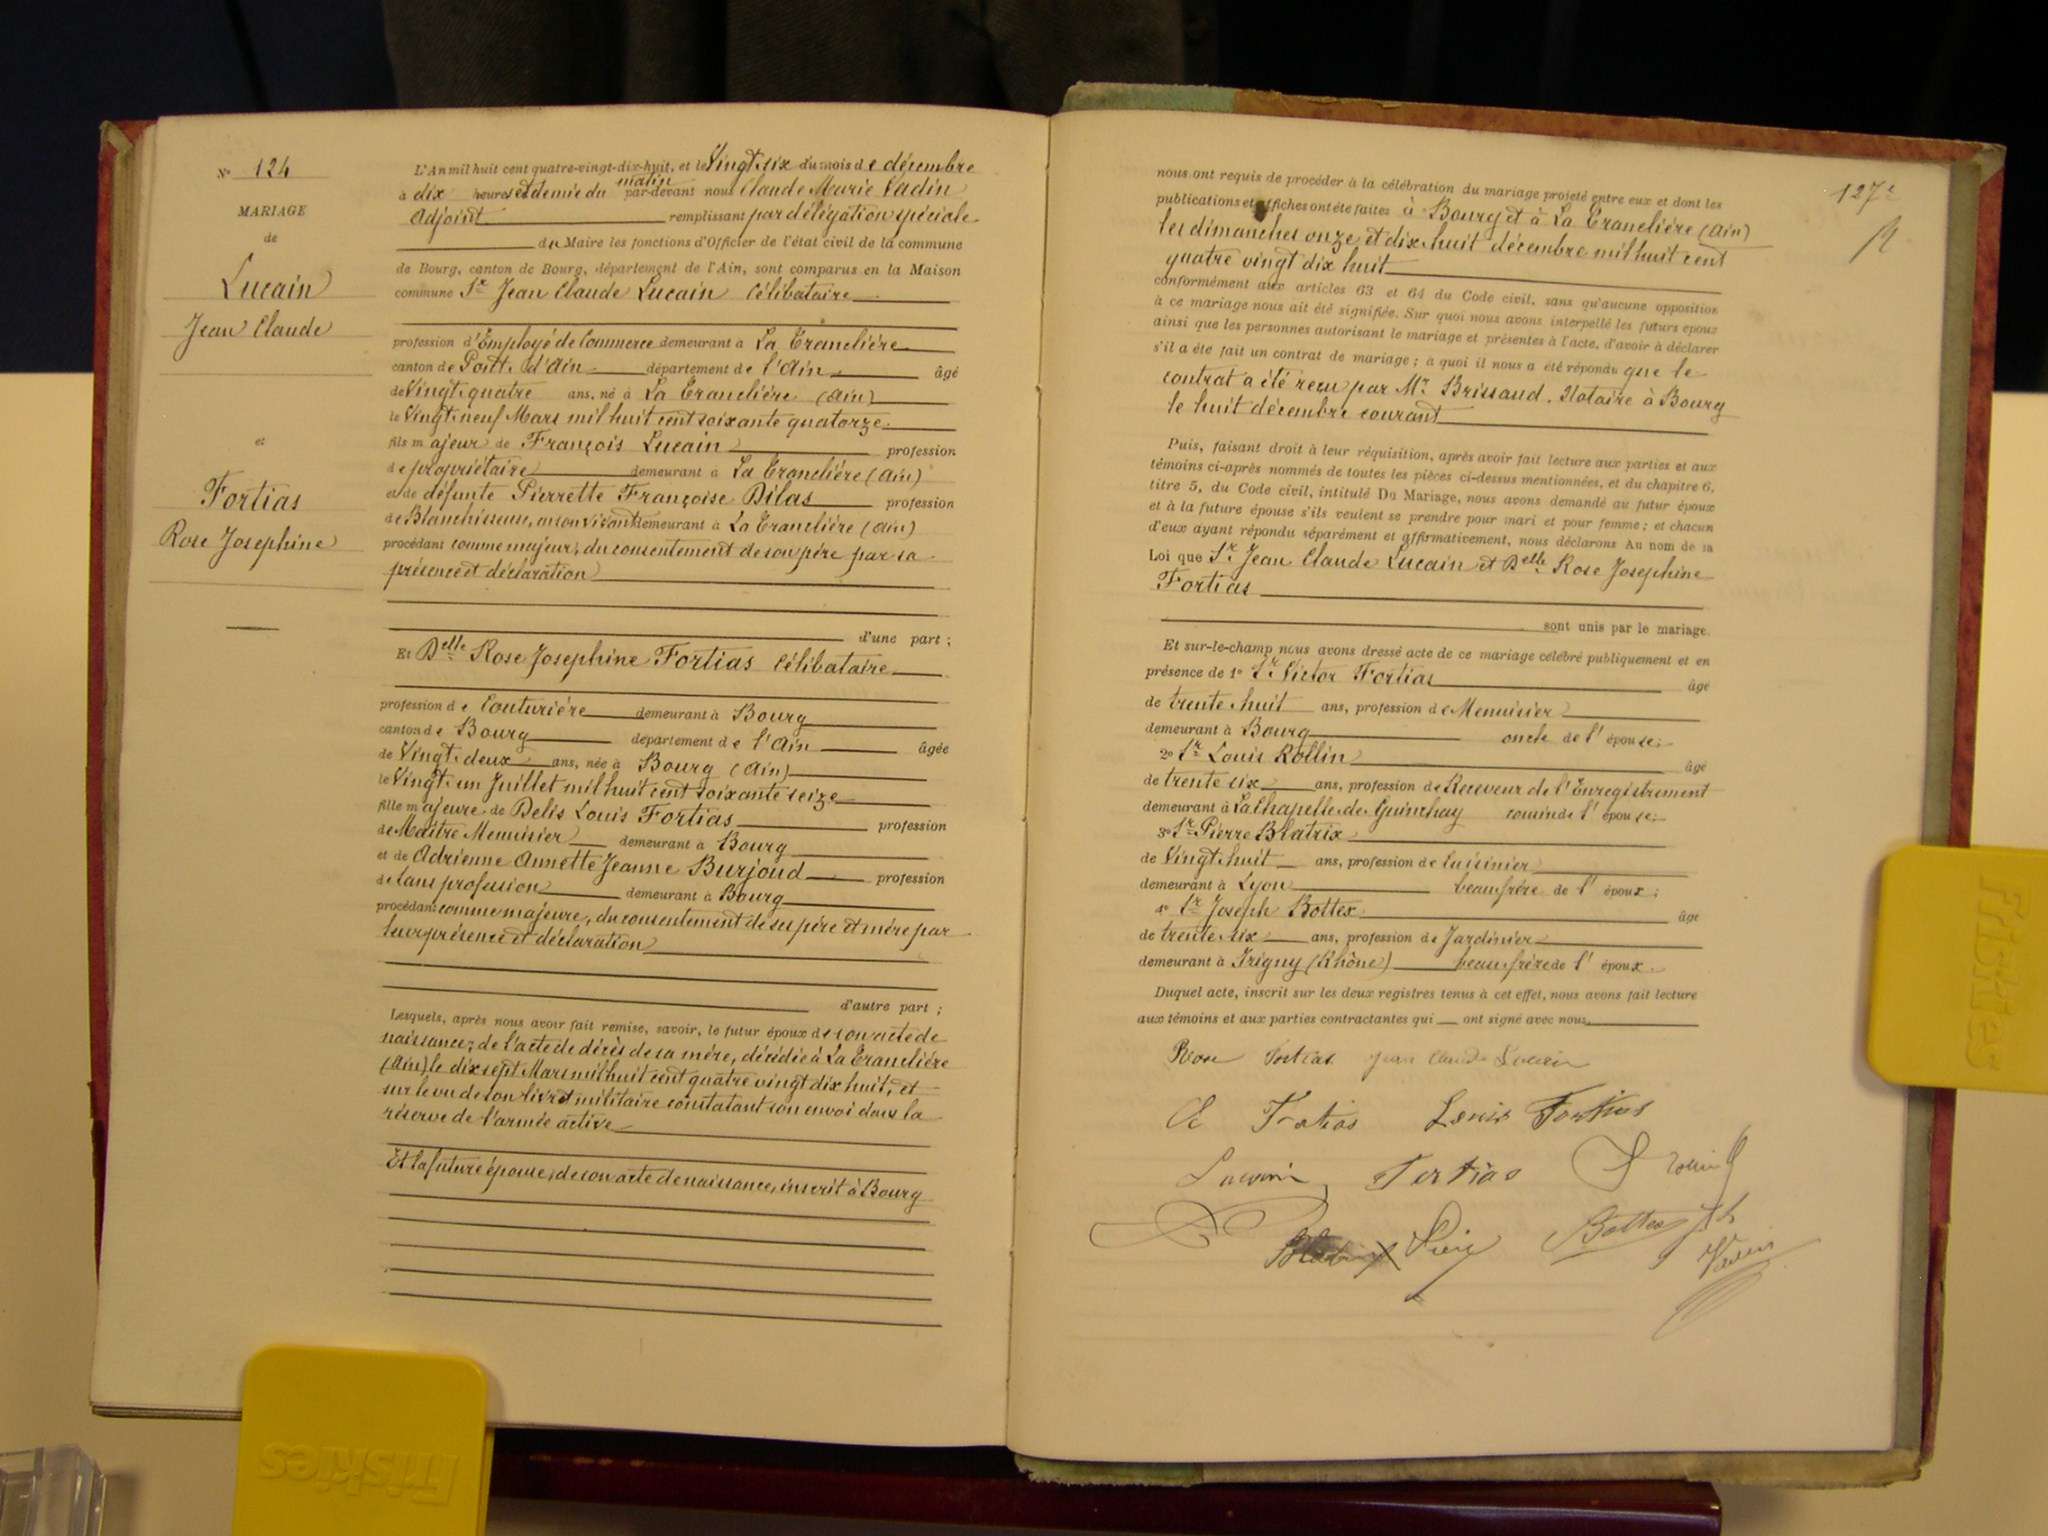 No 124
MARIAGE
de
Lucain
Jean Claude
et
Fortias
Rose Josephine
L'An mil huit cent quatre-vingt-dix-huit, et le Vingt six du mois de décembre
à dix heures et demie du matin par-devant nous Claude Marie Vadin
Adjoint remplissant par délégation spéciale
du Maire les fonctions d'Officier de l'état civil de la commune
de Bourg, canton de Bourg, département de l'Ain, sont comparus en la Maison
commune Sr Jean Claude Lucain célibataire
profession d'Employé de Commerce demeurant à La Tranclière
canton de Pont d'Ain département de l'Ain âgé
de Vingt quatre ans, né à La Tranclière (Ain)
le Vingt neuf Mars mil huit cent soixante quatorze
fils majeur de François Lucain profession
de propriétaire demeurant à La Tranclière (Ain)
et de défunte Pierrette Françoise Dilas profession
de Blanchisseuse, en son vivant demeurant à La Tranclière (Ain)
procédant comme majeur, du consentement de son père par sa
présence et déclaration
d'une part ;
Et Delle Rose Josephine Fortias célibataire
profession de Couturière demeurant à Bourg
canton de Bourg département de l'Ain âgée
de Vingt deux ans, née à Bourg (Ain)
le Vingt un Juillet mil huit cent soixante seize
fille majeure de Delis Louis Fortias profession
de Maître Menuisier demeurant à Bourg
et de Adrienne Annette Jeanne Burjoud profession
de sans profession demeurant à Bourg
procédant comme majeure, du consentement de ses père et mère par
leur présence et déclaration
d'autre part ;
Lesquels, après nous avoir fait remise, savoir, le futur époux de son acte de
naissance; de l'acte de décès de sa mère, décédée à La Tranclière
(Ain) le dix sept Mars mil huit cent quatre vingt dix huit, et
sur le vu de son livret militaire constatant son envoi dans la
réserve de l'armée active
Et la future épouse, de son acte de naissance, inscrit à Bourg
127e
nous ont requis de procéder à la célébration du mariage projeté entre eux et dont les
publications et affiches ont été faites à Bourg et à La Tranclière (Ain)
les dimanches onze et dix huit décembre mil huit cent
quatre vingt dix huit
conformément aux articles 63 et 64 du Code civil, sans qu'aucune opposition
à ce mariage nous ait été signifiée. Sur quoi nous avons interpellé les futurs époux
ainsi que les personnes autorisant le mariage et présentes à l'acte, d'avoir à déclarer
s'il a été fait un contrat de mariage ; à quoi il nous a été répondu que le
contrat a été reçu par Mr Brissaud, Notaire à Bourg
le huit décembre courant
Puis, faisant droit à leur réquisition, après avoir fait lecture aux parties et aux
témoins ci-après nommés de toutes les pièces ci-dessus mentionnées, et du chapitre 6,
titre 5, du Code civil, intitulé Du Mariage, nous avons demandé au futur époux
et à la future épouse s'ils veulent se prendre pour mari et pour femme ; et chacun
d'eux ayant répondu séparément et affirmativement, nous déclarons Au nom de la
Loi que Sr Jean Claude Lucain et Delle Rose Josephine
Fortias
sont unis par le mariage.
Et sur-le-champ nous avons dressé acte de ce mariage célébré publiquement et en
présence de 1o Sr Victor Fortias âgé
de trente huit ans, profession de Menuisier
demeurant à Bourg oncle de l'épouse;
2o Sr Louis Rollin âgé
de trente six ans, profession de Receveur de l'Enregistrement
demeurant à La Chapelle de Guinchay cousin de l'épouse;
3o Sr Pierre Blatrix
de Vingt huit ans, profession de Cuisinier
demeurant à Lyon beau frère de l'époux ;
4o Sr Joseph Bottex âgé
de trente six ans, profession de Jardinier
demeurant à Irigny (Rhône) beau frère de l'époux.
Duquel acte, inscrit sur les deux registres tenus à cet effet, nous avons fait lecture
aux témoins et aux parties contractantes qui ont signé avec nous
Rose Fortias Jean Claude Lucain
Fortias Louis Fortias
Lucain Fortias Rollin
Blatrix Bottex Jh
Vadin
Friskies
Friskies